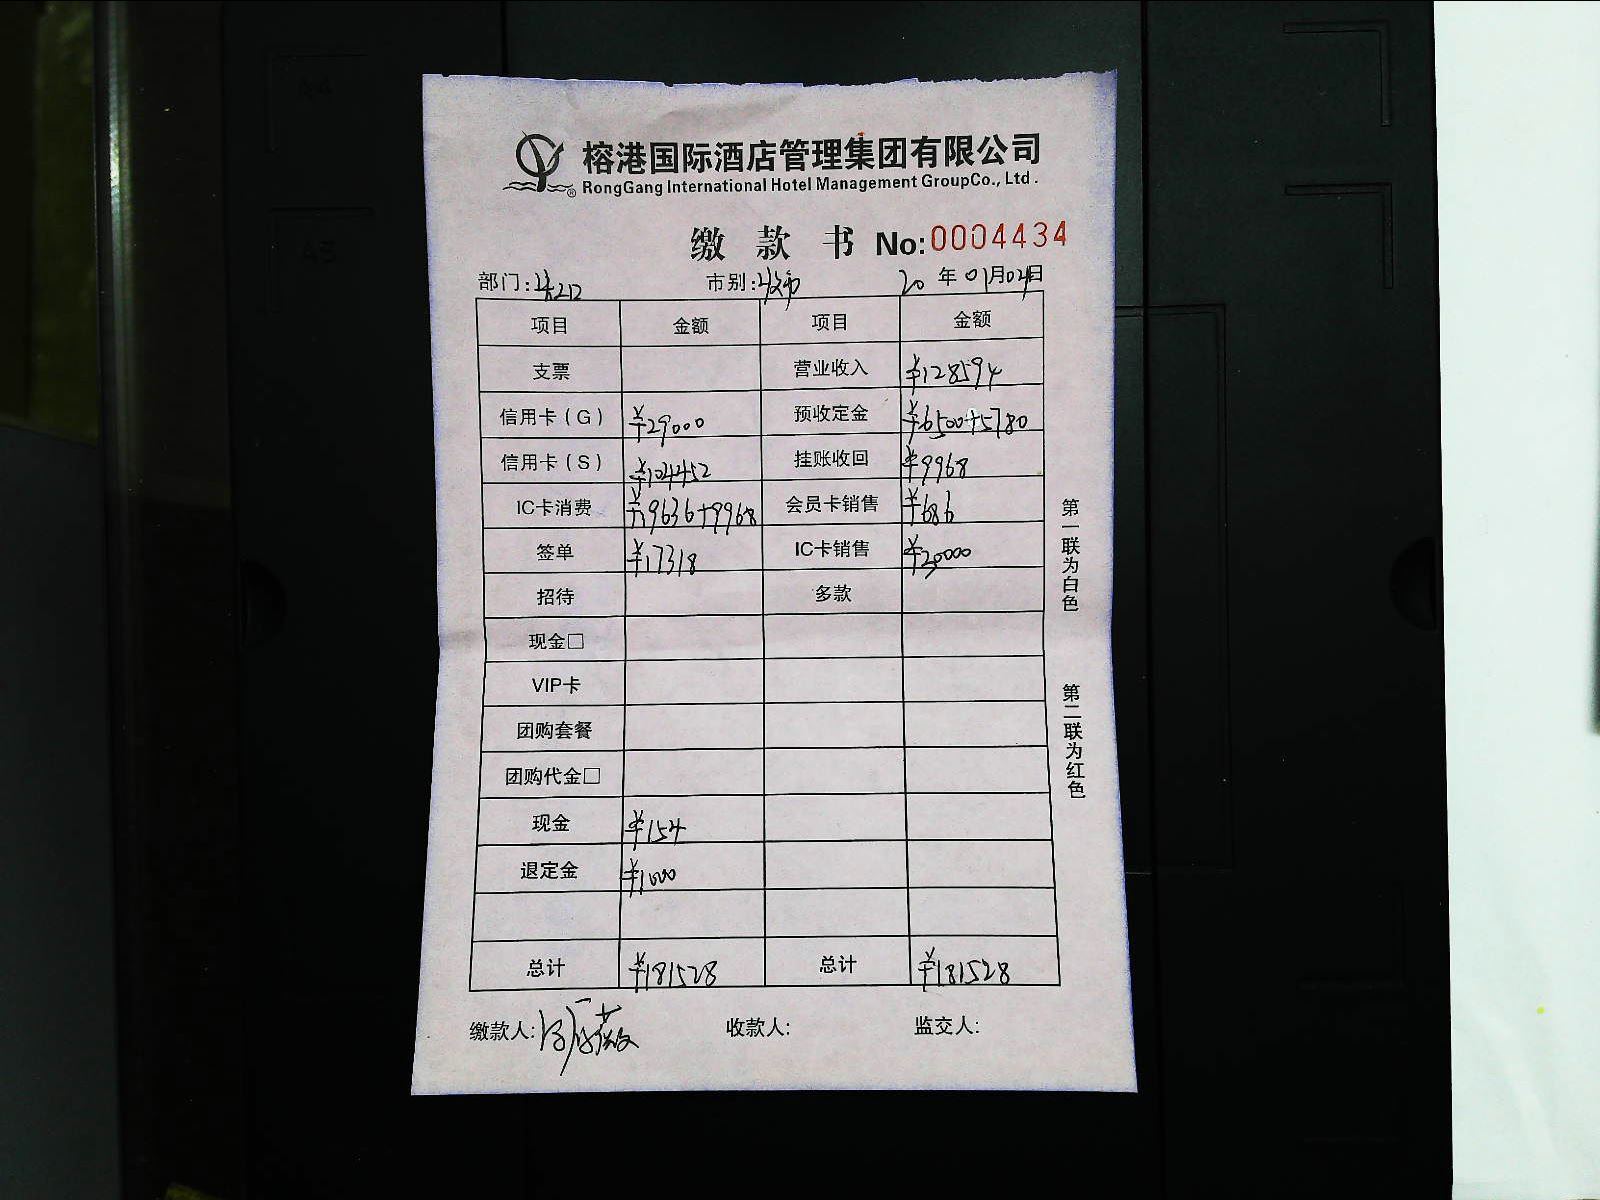 榕港国际酒店管理集团有限公司
RongGang International Hotel Management GroupCo., Ltd .
缴 款 书 No:0004434
部门: 市别: 20 年 01月04日
项目 金额 项目 金额
支票 营业收入 ¥128594
信用卡（G） ¥29000 预收定金 ¥6500+5780
信用卡（S） ¥104452 挂账收回 ¥9968
IC卡消费 ¥19636+9968 会员卡销售 ¥686
签单 ¥17318 IC卡销售 ¥30000
招待 多款
现金□
VIP卡
团购套餐
团购代金□
现金 ¥154
退定金 ¥1000
总计 ¥181528 总计 ¥181528
缴款人: 收款人: 监交人:
第一联为白色
第二联为红色
A4
A5